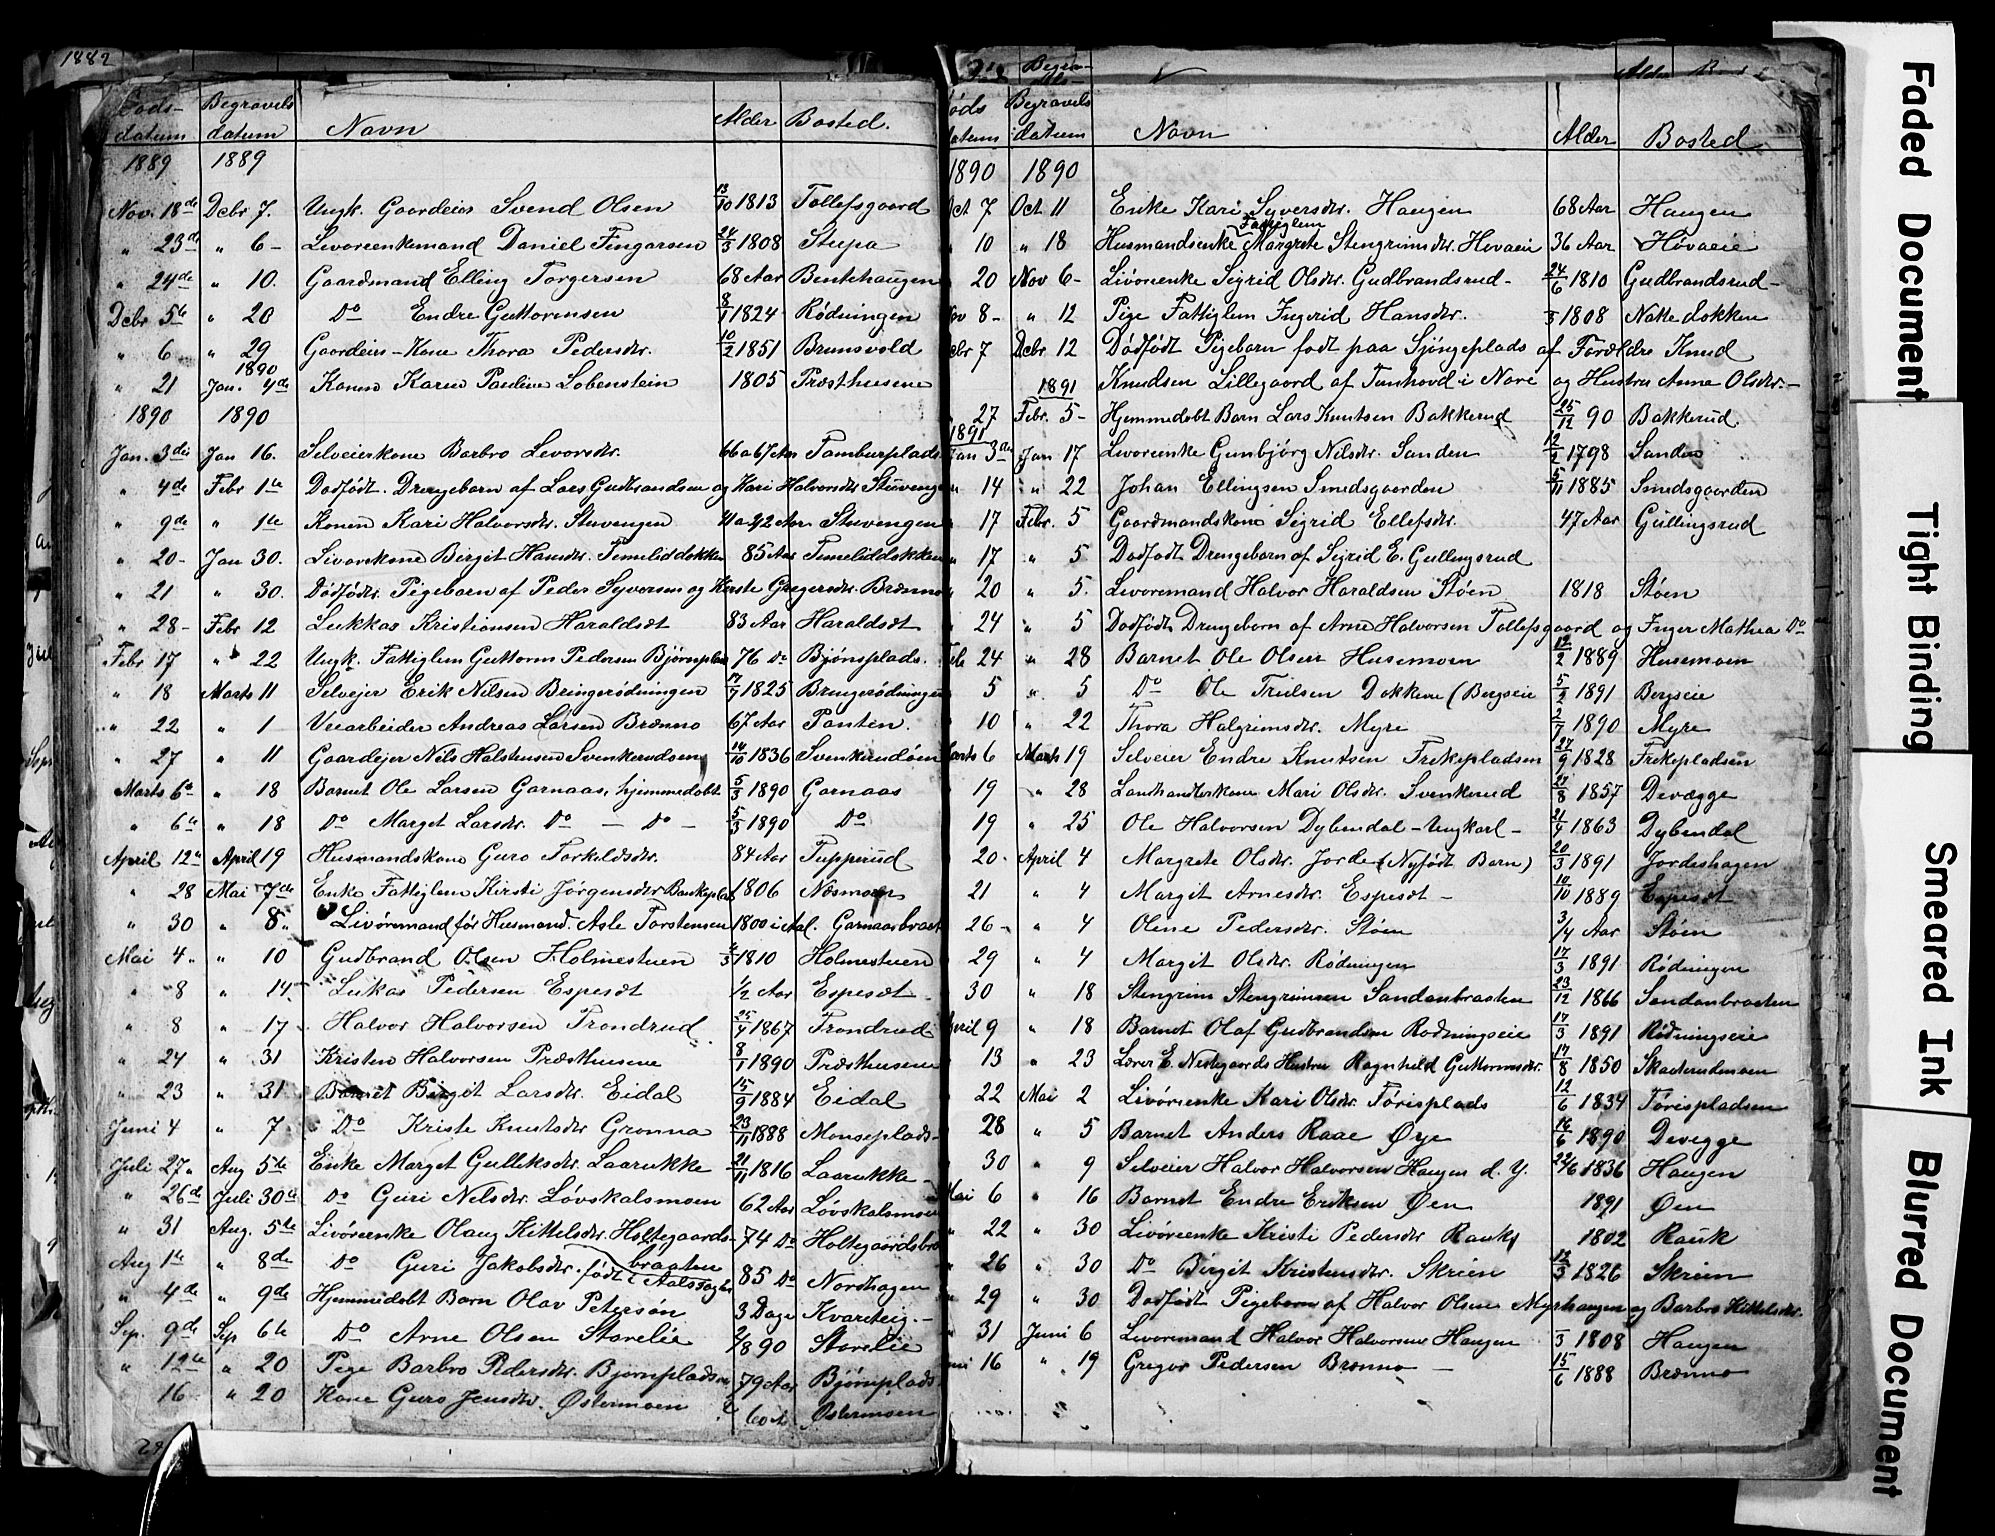 1882
Döds- Begravels
datum datum Navn Alder Bosted.
1889 1889
Nov. 18de Dcbr 7. Ungk. Gaardeier Svend Olsen 13/10 1813 Tollefsgaard
" 23de " 6- Livöreenkemand Daniel Fingarsen 24/3 1808 Stupa
" 24de " 10. Gaardmand Elling Torgersen 68 Aar Bentehaugen
Dcbr 5te " 20 Do Endre Guttormsen 8/1 1824 Rödningen
" 6 " 29 Gaardeier-Kone Thora Pedersdtr. 10/2 1851 Brunsvold
1890
" 21 Jan. 4de Konen Karen Pauline Lobenstein 1805 Præsthusene
1890 1890
Jan. 3die Jan 16. Selveierkone Barbro Levorsdtr. 66 a 67 Aar Tamberplads
" 4de Febr 1te Dødfödt Drengebarn af Lars Gudbrandsen og Kari Halvorsdtr Stuvengen
" 9de " 1te Konen Kari Halvorsdtr. Stuvengen 41 a 42 Aar Stuvengen
" 20- Jan 30. Livörekone Birgit Hansdtr. Temeliddokken 85 Aar Temeliddokken
" 21 " 30. Dödfödt. Pigebarn af Peder Syversen og Kirste Gregersdtr. Brænno
" 28- Febr 12 Lukkas Kristiansen Haraldset 83 Aar Haraldset
Febr 17 " 22 Ungk. Fattiglem Guttorm Pedersen Björnplads 76 Do Bjönsplads.
" 18 Marts 11 Selvejer Erik Nilsen Bringerödningen 17/7 1825 Bringerödningen
" 22 " 1 Veiarbeider Andreas Larsen Brænno 67 Aar Panten.
" 27 " 11 Gaardejer Nils Halstensen Svenkerudsen 14/10 1836 Svenkerudöen
Marts 6te " 18 Barnet Ole Larsen Garnaas, hjemmedöbt 5/3 1890 Garnaas
" 6te " 18 Do Marget Larsdtr. Do - Do - 5/3 1890 Do
April 12te April 19 Husmandskone Guro Torkildsdtr. 84 Aar Tupperud
" 28 Mai 7de Enke Fattiglem Kirsti Jörgensdtr Bankeplads 1806 Næsmoen
" 30 " 8" Livöremand för Husmand. Asle Torstensen 1800 i Aal. Garnaasbraat
Mai 4" " 10 Gudbrand Olsen Holmestuen 1810 Holmestuen
" 8 " 14. Lukas Pedersen Espeset 1/2 Aar Espeset
" 8 " 17 Halvor Halvorsen Trondrud 25/4 1867 Trondrud
" 24 " 31 Kristen Halvorsen Præsthusene 8/1 1890 Præsthusene
" 23 " 31 Barnet Birgit Larsdtr. Eidal 15/9 1884 Eidal
Juni 4 " 7 " Do Kriste Knutsdtr Grönna 23/11 1888 Monseplads-
Juli 27" Aug 5te Enke Marget Gulleksdtr. Laarukke 21/11 1816 Laarukke-
" 26de Juli 30te Do Guri Nilsdtr. Lövskalsmoen 62 Aar Lövskalsmoen
" 31 Aug. 5te Livöreenke Olaug Kittelsdtr. Holtegaards- 74 Do Holtegaardsbro
braaten
Aug 1te " 8de Do Guri Jakobsdtr. födt i Aalssogn 85 Do Nordhagen
" 4de " 9de Hjemmedöbt Barn Olav Petersön 3 Dage Kvarteig.-
Sep. 9de Sep 6te Do Arne Olsen Storelie 2/8 90 Storelie
" 12te " 20 Pige Barbro Pedersdtr. Björnpladsen 79 Aar Björnplads
16 " 20 Kone Guro Jensdtr. Östermoen 60 A Östermoen

Begra-
Alder
Döds Begravels
datum datum Navn Alder Bosted
1890 1890
Oct 7 Oct 11 Enke Kari Syversdtr. Haugen 68 Aar Haugen
Fattiglem
" 10 " 18 Husmandsenke Margrete Stengrimsdtr. Hovaeie 36 Aar Hövaeie
20 Nov 6- Livöreenke Sigrid Olsdtr. Gudbrandsrud- 24/6 1810 Gudbrandsrud-
Nov 8- " 12 Pige Fattiglem Ingerid Hansdtr. /3 1808 Nattedokken
Dcbr 7 Dcbr 12 Dödfödt Pigebarn födt paa Sjöngeplads af Forældre Knud
1891 Knudsen Lillegaard af Tunhovd i Nore og Hustru Anne Olsdtr.-
27 Febr. 5- Hjemmedöbt Barn Lars Knutsen Bakkerud 25/12 90 Bakkerud.
1891
Jan 3die Jan 17 Livöreenke Gunbjörg Nilsdtr. Sanden 12/2 1798 Sanden
" 14 " 22 Johan Ellingsen Smedsgaarden 5/11 1885 Smedsgaarden
" 17 Febr. 5 Gaardmandskone Sigrid Ellefsdtr. 47 Aar Gullingsrud
" 17 " 5 Dødfødt Drengebarn af Sigrid E. Gullingsrud
20 " 5. Livöremand Halvor Haraldsen Stöen 1818 Stöen
24 " 5 Dödfödt Drengebarn af Arne Halvorsen Tollefsgaard og Inger Mathea Do
Feb 24 " 28 Barnet Ole Olsen Husemoen 12/2 1889 Husemoen
5 " 5 Do Ole Truelsen Dokken (Bergseie 5/2 1891 Bergseie
10 " 22 Thora Halgrimsdtr. Myre 2/7 1890 Myre
Marts 6 Marts 19 Selveier Endre Knutsen Trekepladsen 27/9 1828 Trekepladsen
19 " 28 Landhandlerkone Mari Olsdtr. Svenkerud 27/8 1857 Devægge
19 " 25 Ole Halvorsen Dybendal-Ungkarl- 21/4 1863 Dybendal
20. April 4 Margrete Olsdtr. Jorde (Nyfödt Barn) 20/3 1891 Jordeshagen
21 " 4 Margit Arnesdtr. Espeset - 10/10 1889 Espeset
26- " 4 Olene Pedersdtr. Stöen 3/4 Aar Stöen
29 " 4 Margit Olsdtr. Rödningen 17/3 1891 Rödningen
30 " 18 Stengrim Stengrimsen Sandanbraaten 23/12 1866 Sandanbraaten
April 9 " 18 Barnet Olaf Gudbrandsen Rödningseie 17/3 1891 Rödningseie
" 13 " 23 Lærer E. Nestegaards Hustru Ragnhild Guttormsdtr. 17/8 1850 Skaderudmoen
22 Mai 2 Livöreenke Kari Olsdtr. Törisplads 12/6 1834 Törispladsen
28 " 5 Barnet Anders Raae Öye 16/6 1890 Devegge
30 " 9 Selveier Halvor Halvorsen Haugen d. Y. 22/6 1836 Haugen
Mai 6 " 16 Barnet Endre Eriksen Öen 1891 Öen
" 22 " 30 Livöreenke Kristi Pedersdtr Rauk 1802 Rauk
" 26 " 30 Do Birgit Kristensdtr. Skrien 12/3 1826 Skrien
29 " 30 Dödfödt Pigebarn af Halvor Olsen Myrhaugen og Barbro Kittelsdtr.
31 Juni 6 Livöremand Halvor Halvorsen Haugen /3 1808 Haugen
Juni 16 " 19 Gregor Pedersen Brænno - 15/6 1888 Brænno

Faded Document
Tight Binding
Smeared Ink
Blurred Document